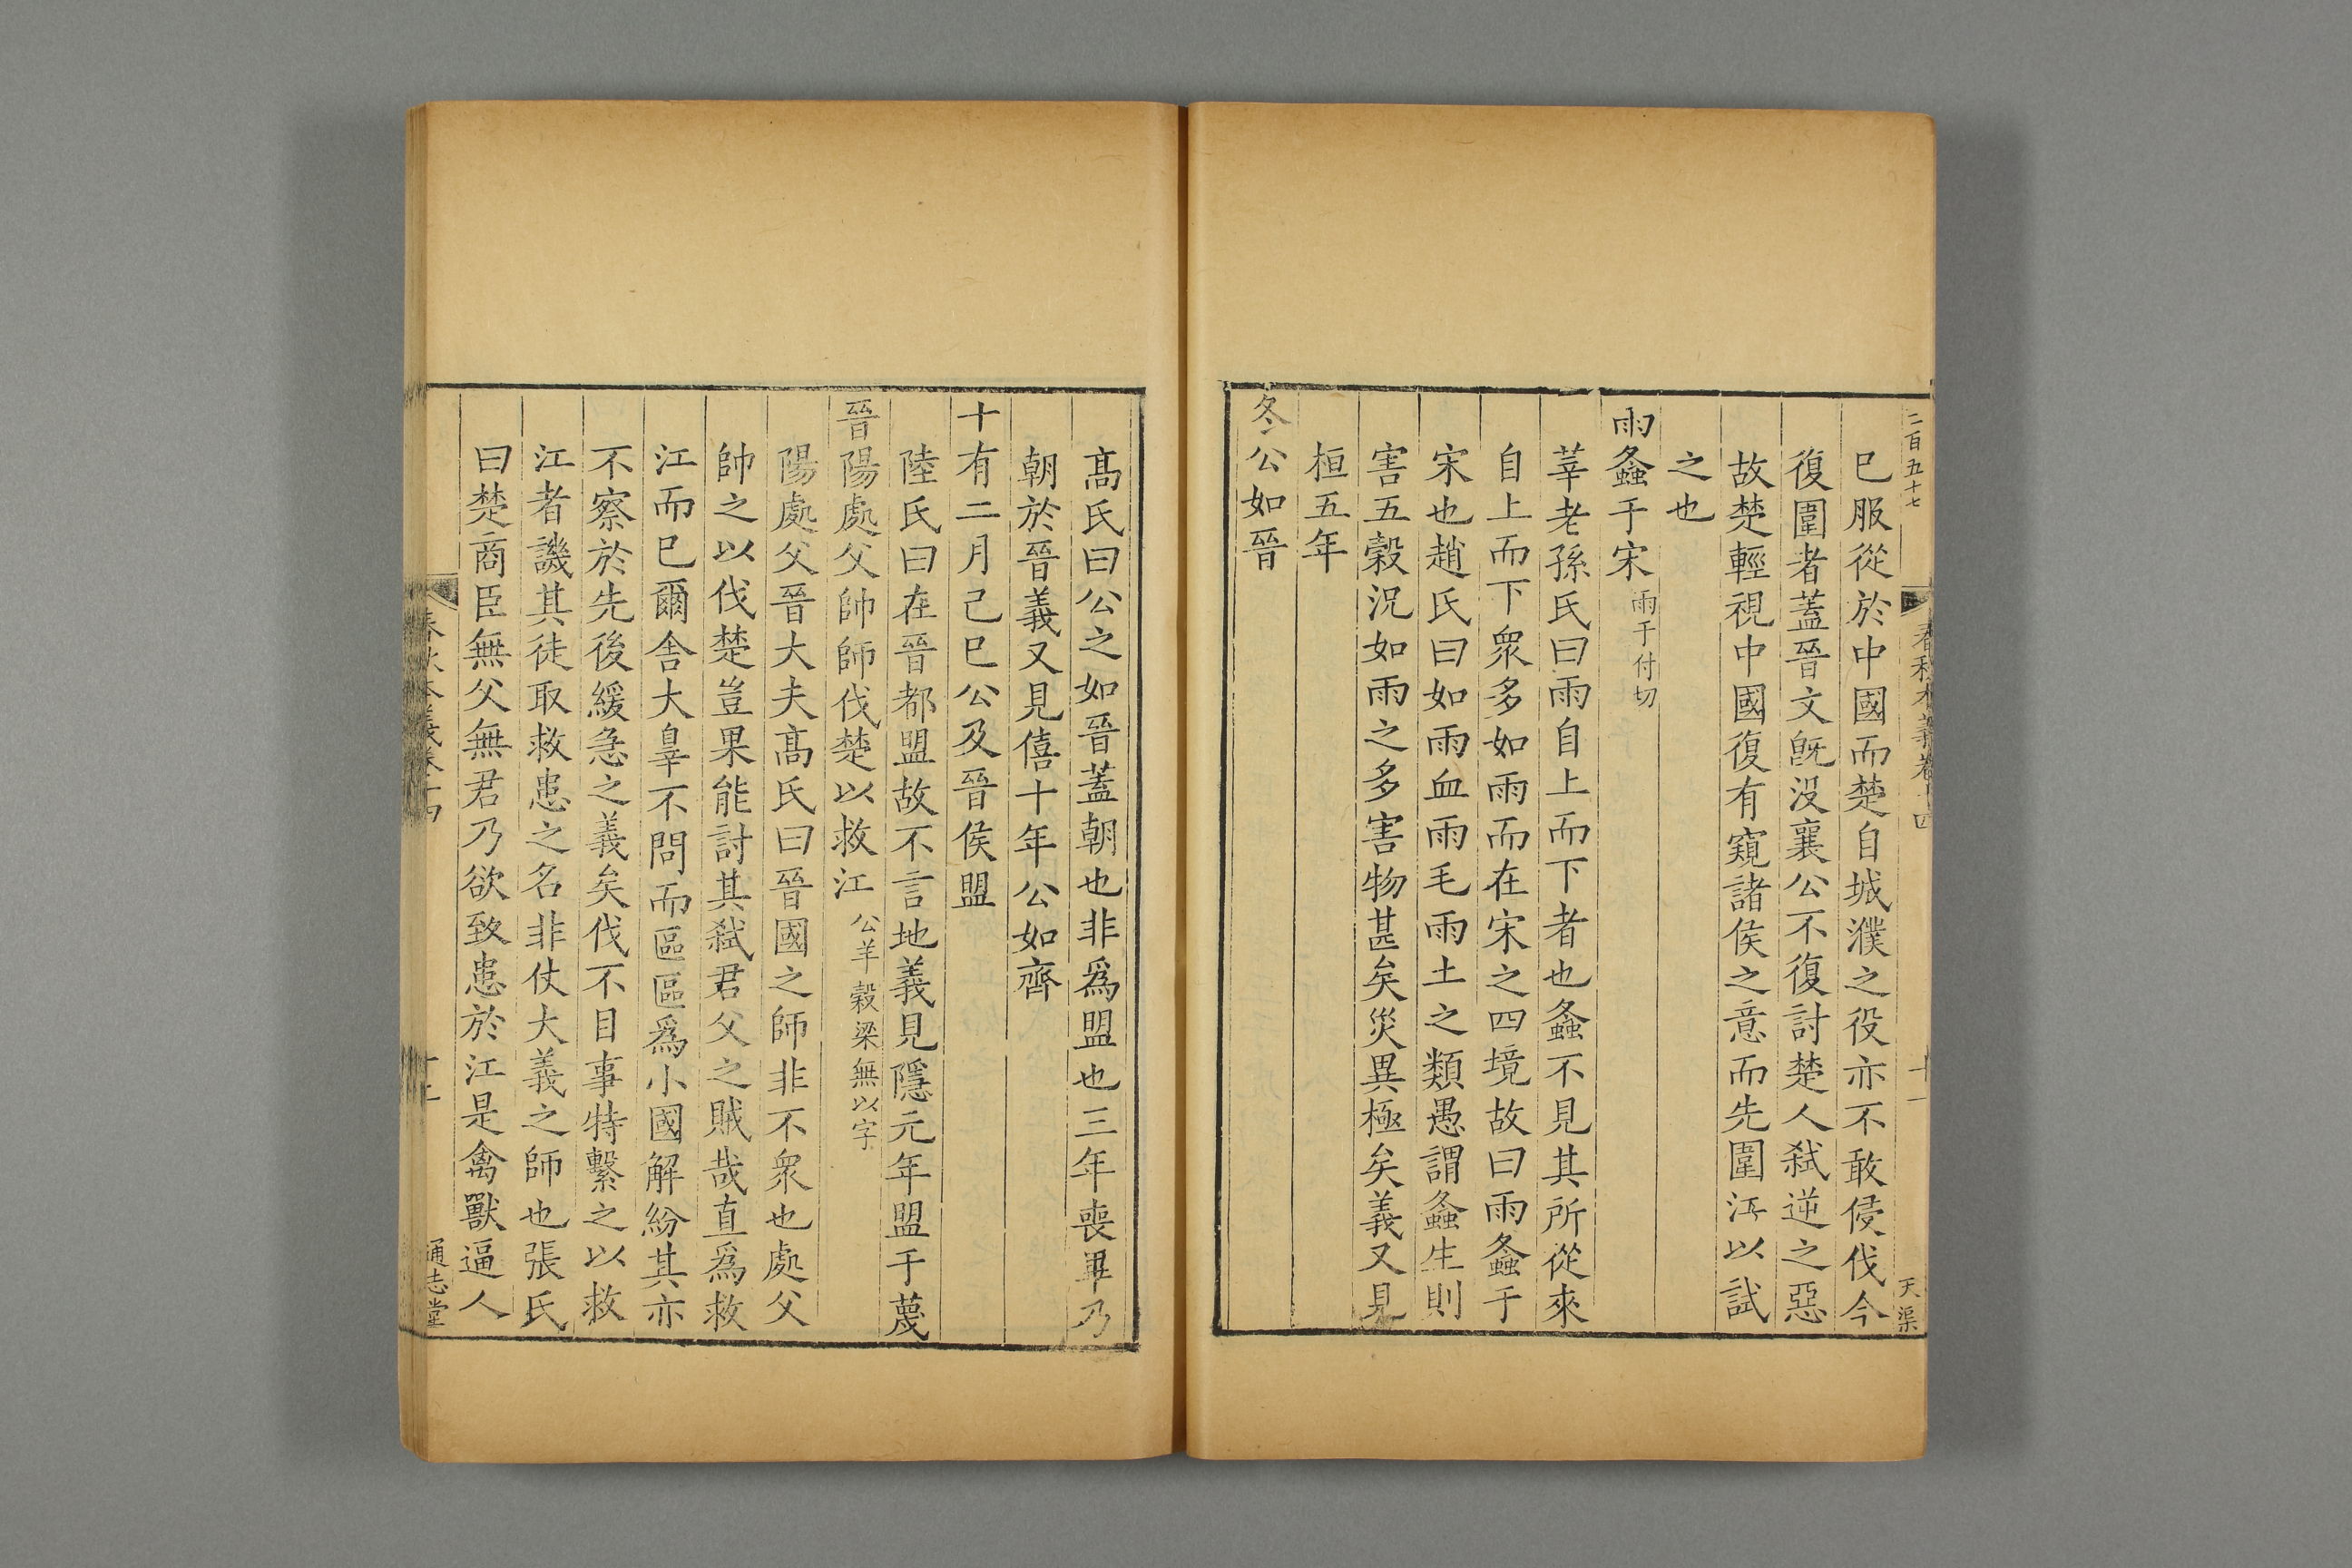 二百五十七
春秋本義卷十四
十一
天渠
已服從於中國而楚自城濮之役亦不敢侵伐今
復圍者蓋晉文旣沒襄公不復討楚人弑逆之惡
故楚輕視中國復有窺諸侯之意而先圍江以試
之也
雨螽于宋 雨于付切
莘老孫氏曰雨自上而下者也螽不見其所從來
自上而下衆多如雨而在宋之四境故曰雨螽于
宋也趙氏曰如雨血雨毛雨土之類愚謂螽生則
害五穀況如雨之多害物甚矣災異極矣義又見
桓五年
冬公如晉
髙氏曰公之如晉蓋朝也非爲盟也三年喪畢乃
朝於晉義又見僖十年公如齊
十有二月己巳公及晉侯盟
陸氏曰在晉都盟故不言地義見隱元年盟于蔑
晉陽處父帥師伐楚以救江 公羊穀梁無以字
陽處父晉大夫髙氏曰晉國之師非不衆也處父
帥之以伐楚豈果能討其弑君父之賊哉直爲救
江而已爾舍大辠不問而區區爲小國解紛其亦
不察於先後緩急之義矣伐不目事特繫之以救
江者譏其徒取救患之名非仗大義之師也張氏
曰楚商臣無父無君乃欲致患於江是禽獸逼人
春秋本義卷十四
通志堂